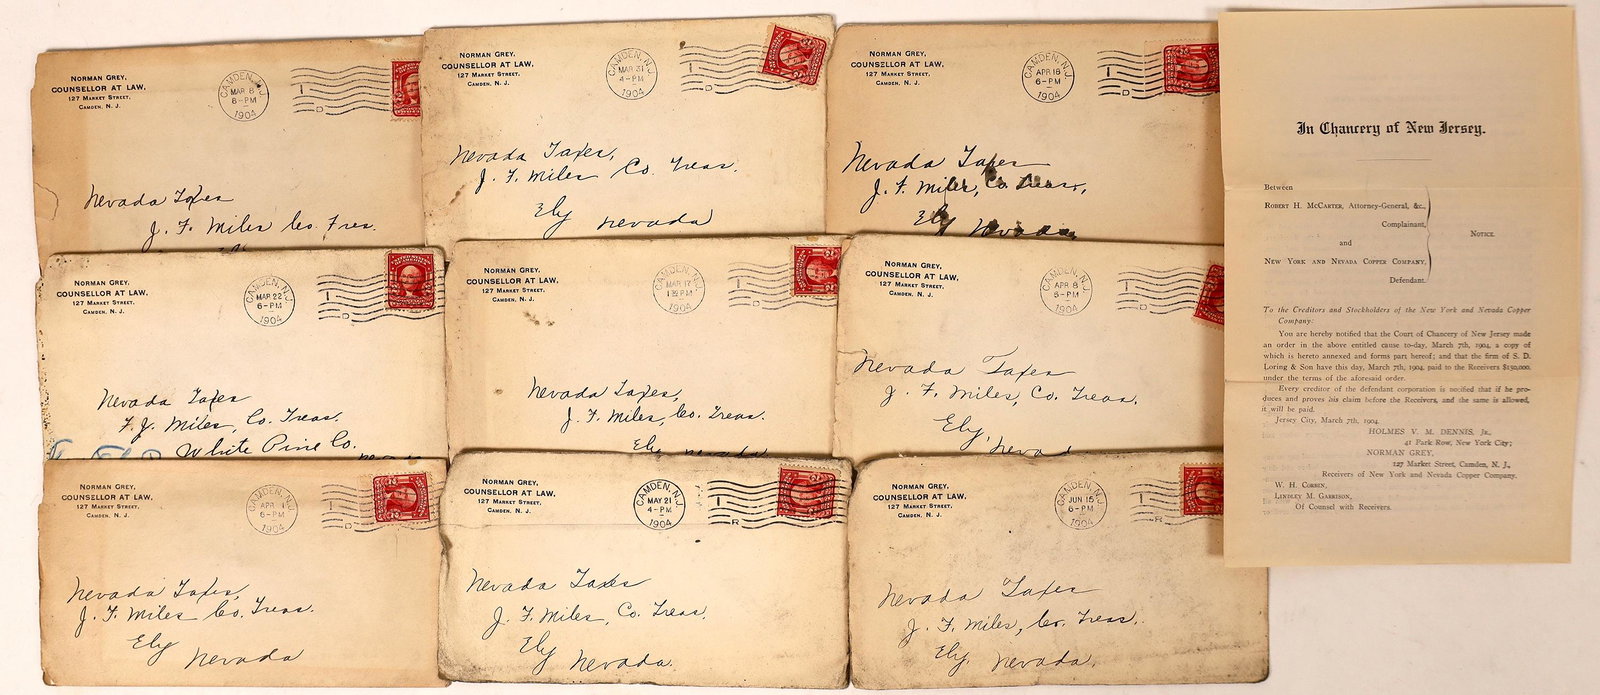 NORMAN GREY,
COUNSELLOR AT LAW,
127 MARKET STREET,
CAMDEN, N. J.
CAMDEN, N.J.
MAR 8
6-PM
1904
D
Nevada Taxes
J. F. Miles Co. Tres.
NORMAN GREY,
COUNSELLOR AT LAW,
127 MARKET STREET,
CAMDEN, N. J.
CAMDEN, N.J.
MAR 31
4-PM
1904
D
Nevada Taxes,
J. F. Miles Co. Treas.
Ely Nevada
NORMAN GREY,
COUNSELLOR AT LAW,
127 MARKET STREET,
CAMDEN, N. J.
CAMDEN, N.J.
APR 18
6-PM
1904
D
Nevada Taxes
J. F. Miles, Co. Treas,
Ely Nevada
NORMAN GREY,
COUNSELLOR AT LAW,
127 MARKET STREET,
CAMDEN, N. J.
CAMDEN, N.J.
MAR 22
6-PM
1904
D
Nevada Taxes
F. J. Miles, Co. Treas.
White Pine Co.
NORMAN GREY,
COUNSELLOR AT LAW,
127 MARKET STREET,
CAMDEN, N. J.
CAMDEN, N.J.
MAR 17
PM
1904
D
Nevada Taxes,
J. F. Miles, Co. Treas.
Ely Nevada
NORMAN GREY,
COUNSELLOR AT LAW,
127 MARKET STREET,
CAMDEN, N. J.
CAMDEN, N.J.
APR 8
6-PM
1904
D
Nevada Taxes
J. F. Miles, Co. Treas.
Ely, Nevada
NORMAN GREY,
COUNSELLOR AT LAW,
127 MARKET STREET,
CAMDEN, N. J.
CAMDEN, N.J.
APR
6-PM
1904
D
Nevada Taxes,
J. F. Miles Co. Treas.
Ely Nevada
NORMAN GREY,
COUNSELLOR AT LAW,
127 MARKET STREET,
CAMDEN, N. J.
CAMDEN, N.J.
MAY 21
4-PM
1904
R
Nevada Taxes
J. F. Miles, Co. Treas,
Ely Nevada.
NORMAN GREY,
COUNSELLOR AT LAW,
127 MARKET STREET,
CAMDEN, N. J.
CAMDEN, N.J.
JUN 15
6-PM
1904
R
Nevada Taxes
J. F. Miles, Co. Treas,
Ely, Nevada.
In Chancery of New Jersey.
Between
ROBERT H. MCCARTER, Attorney-General, &c.,
Complainant,
and
NOTICE.
NEW YORK AND NEVADA COPPER COMPANY,
Defendant.
To the Creditors and Stockholders of the New York and Nevada Copper
Company:
You are hereby notified that the Court of Chancery of New Jersey made
an order in the above entitled cause to-day, March 7th, 1904, a copy of
which is hereto annexed and forms part hereof; and that the firm of S. D.
Loring & Son have this day, March 7th, 1904, paid to the Receivers $150,000,
under the terms of the aforesaid order.
Every creditor of the defendant corporation is notified that if he pro-
duces and proves his claim before the Receivers, and the same is allowed,
it will be paid.
Jersey City, March 7th, 1904.
HOLMES V. M. DENNIS, JR.,
41 Park Row, New York City;
NORMAN GREY,
127 Market Street, Camden, N. J.,
Receivers of New York and Nevada Copper Company.
W. H. CORBIN,
LINDLEY M. GARRISON,
Of Counsel with Receivers.